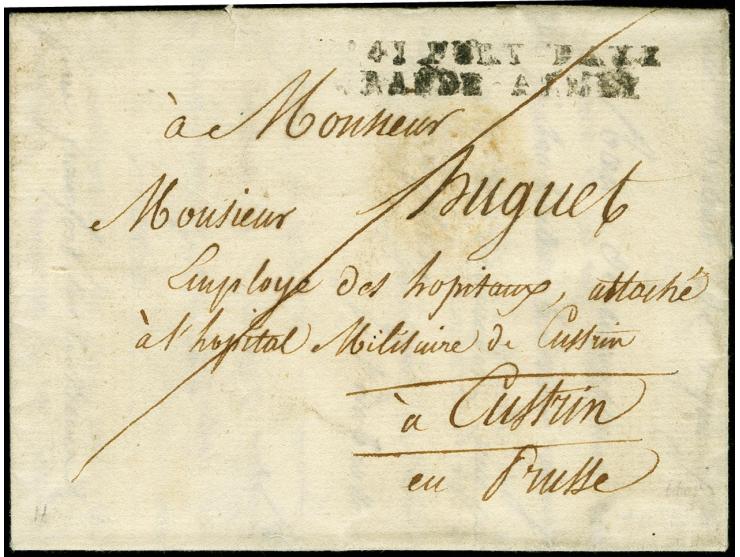 41 PORT PAYÉ
GRANDE-ARMÉE
à Monsieur
Monsieur huguet
Employé des hopitaux, attaché
à l'hopital Militaire de Custrin
à Custrin
en Prusse